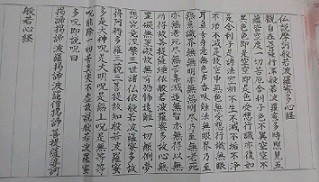 仏説摩訶般若波羅蜜多心経
観自在菩薩行深般若波羅蜜多時照見五
蘊皆空度一切苦厄舎利子色不異空空不
異色色即是空空即是色受想行識亦復如
是舎利子是諸法空相不生不滅不垢不浄
不増不減是故空中無色無受想行識無眼
耳鼻舌身意無色声香味触法無眼界乃至
無意識界無無明亦無無明尽乃至無老死
亦無老死尽無苦集滅道無智亦無得以無
所得故菩提薩埵依般若波羅蜜多故心無
罣礙無罣礙故無有恐怖遠離一切顛倒夢
想究竟涅槃三世諸仏依般若波羅蜜多故
得阿耨多羅三藐三菩提故知般若波羅蜜
多是大神呪是大明呪是無上呪是無等等
呪能除一切苦真実不虚故説般若波羅蜜
多呪即説呪曰
羯諦羯諦波羅羯諦波羅僧羯諦菩提薩婆訶
般若心経